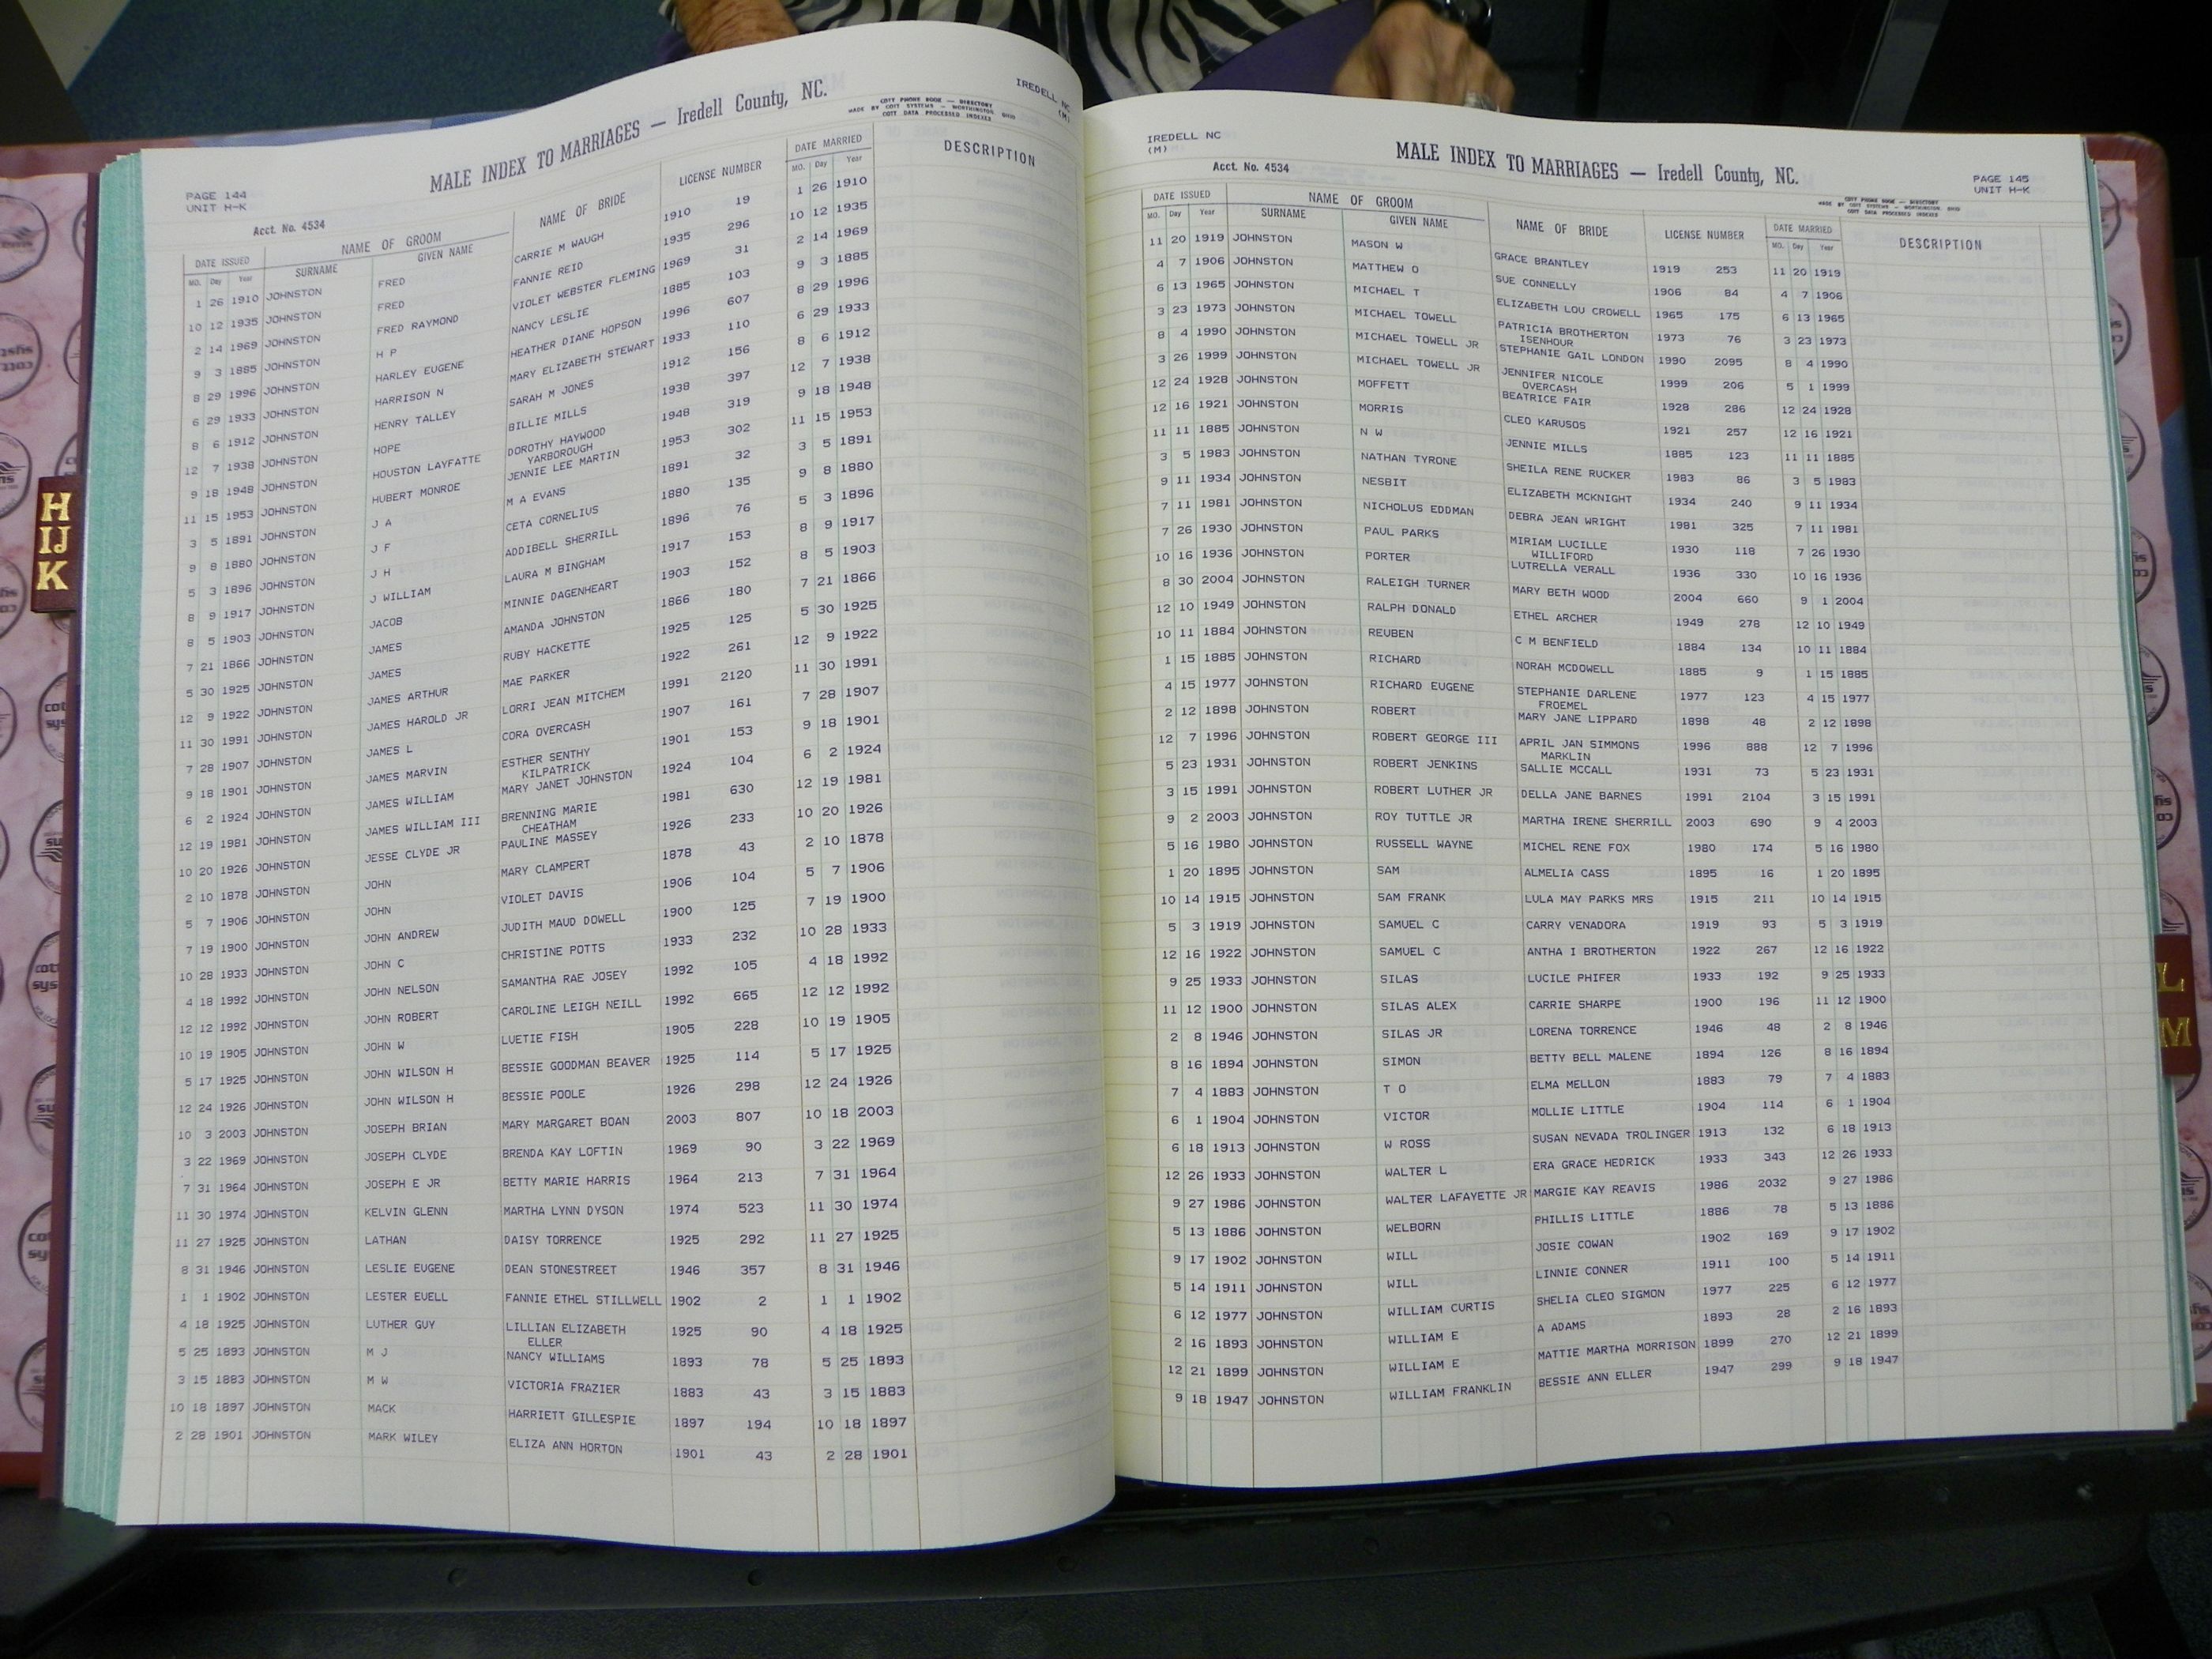 PAGE 144
UNIT H-K
MALE INDEX TO MARRIAGES — Iredell County, NC.
COTT PHONE BOOK — DIRECTORY
MADE BY COTT SYSTEMS — WORTHINGTON, OHIO
COTT DATA PROCESSED INDEXES
IREDELL NC
(M)
Acct. No. 4534
DATE ISSUED NAME OF GROOM NAME OF BRIDE LICENSE NUMBER DATE MARRIED DESCRIPTION
MO. Day Year SURNAME GIVEN NAME MO. Day Year
1 26 1910 JOHNSTON FRED CARRIE M WAUGH 1910 19 1 26 1910
10 12 1935 JOHNSTON FRED FANNIE REID 1935 296 10 12 1935
2 14 1969 JOHNSTON FRED RAYMOND VIOLET WEBSTER FLEMING 1969 31 2 14 1969
9 3 1885 JOHNSTON H P NANCY LESLIE 1885 103 9 3 1885
8 29 1996 JOHNSTON HARLEY EUGENE HEATHER DIANE HOPSON 1996 607 8 29 1996
6 29 1933 JOHNSTON HARRISON N MARY ELIZABETH STEWART 1933 110 6 29 1933
8 6 1912 JOHNSTON HENRY TALLEY SARAH M JONES 1912 156 8 6 1912
12 7 1938 JOHNSTON HOPE BILLIE MILLS 1938 397 12 7 1938
9 18 1948 JOHNSTON HOUSTON LAYFATTE DOROTHY HAYWOOD 1948 319 9 18 1948
YARBOROUGH
11 15 1953 JOHNSTON HUBERT MONROE JENNIE LEE MARTIN 1953 302 11 15 1953
3 5 1891 JOHNSTON J A M A EVANS 1891 32 3 5 1891
9 8 1880 JOHNSTON J F CETA CORNELIUS 1880 135 9 8 1880
5 3 1896 JOHNSTON J H ADDIBELL SHERRILL 1896 76 5 3 1896
8 9 1917 JOHNSTON J WILLIAM LAURA M BINGHAM 1917 153 8 9 1917
8 5 1903 JOHNSTON JACOB MINNIE DAGENHEART 1903 152 8 5 1903
7 21 1866 JOHNSTON JAMES AMANDA JOHNSTON 1866 180 7 21 1866
5 30 1925 JOHNSTON JAMES RUBY HACKETTE 1925 125 5 30 1925
12 9 1922 JOHNSTON JAMES ARTHUR MAE PARKER 1922 261 12 9 1922
11 30 1991 JOHNSTON JAMES HAROLD JR LORRI JEAN MITCHEM 1991 2120 11 30 1991
7 28 1907 JOHNSTON JAMES L CORA OVERCASH 1907 161 7 28 1907
9 18 1901 JOHNSTON JAMES MARVIN ESTHER SENTHY 1901 153 9 18 1901
KILPATRICK
6 2 1924 JOHNSTON JAMES WILLIAM MARY JANET JOHNSTON 1924 104 6 2 1924
12 19 1981 JOHNSTON JAMES WILLIAM III BRENNING MARIE 1981 630 12 19 1981
CHEATHAM
10 20 1926 JOHNSTON JESSE CLYDE JR PAULINE MASSEY 1926 233 10 20 1926
2 10 1878 JOHNSTON JOHN MARY CLAMPERT 1878 43 2 10 1878
5 7 1906 JOHNSTON JOHN VIOLET DAVIS 1906 104 5 7 1906
7 19 1900 JOHNSTON JOHN ANDREW JUDITH MAUD DOWELL 1900 125 7 19 1900
10 28 1933 JOHNSTON JOHN C CHRISTINE POTTS 1933 232 10 28 1933
4 18 1992 JOHNSTON JOHN NELSON SAMANTHA RAE JOSEY 1992 105 4 18 1992
12 12 1992 JOHNSTON JOHN ROBERT CAROLINE LEIGH NEILL 1992 665 12 12 1992
10 19 1905 JOHNSTON JOHN W LUETIE FISH 1905 228 10 19 1905
5 17 1925 JOHNSTON JOHN WILSON H BESSIE GOODMAN BEAVER 1925 114 5 17 1925
12 24 1926 JOHNSTON JOHN WILSON H BESSIE POOLE 1926 298 12 24 1926
10 3 2003 JOHNSTON JOSEPH BRIAN MARY MARGARET BOAN 2003 807 10 18 2003
3 22 1969 JOHNSTON JOSEPH CLYDE BRENDA KAY LOFTIN 1969 90 3 22 1969
7 31 1964 JOHNSTON JOSEPH E JR BETTY MARIE HARRIS 1964 213 7 31 1964
11 30 1974 JOHNSTON KELVIN GLENN MARTHA LYNN DYSON 1974 523 11 30 1974
11 27 1925 JOHNSTON LATHAN DAISY TORRENCE 1925 292 11 27 1925
8 31 1946 JOHNSTON LESLIE EUGENE DEAN STONESTREET 1946 357 8 31 1946
1 1 1902 JOHNSTON LESTER EUELL FANNIE ETHEL STILLWELL 1902 2 1 1 1902
4 18 1925 JOHNSTON LUTHER GUY LILLIAN ELIZABETH 1925 90 4 18 1925
ELLER
5 25 1893 JOHNSTON M J NANCY WILLIAMS 1893 78 5 25 1893
3 15 1883 JOHNSTON M W VICTORIA FRAZIER 1883 43 3 15 1883
10 18 1897 JOHNSTON MACK HARRIETT GILLESPIE 1897 194 10 18 1897
2 28 1901 JOHNSTON MARK WILEY ELIZA ANN HORTON 1901 43 2 28 1901
IREDELL NC
(M)
Acct. No. 4534
MALE INDEX TO MARRIAGES — Iredell County, NC.
PAGE 145
UNIT H-K
COTT PHONE BOOK — DIRECTORY
MADE BY COTT SYSTEMS — WORTHINGTON, OHIO
COTT DATA PROCESSED INDEXES
DATE ISSUED NAME OF GROOM NAME OF BRIDE LICENSE NUMBER DATE MARRIED DESCRIPTION
MO. Day Year SURNAME GIVEN NAME MO. Day Year
11 20 1919 JOHNSTON MASON W GRACE BRANTLEY 1919 253 11 20 1919
4 7 1906 JOHNSTON MATTHEW O SUE CONNELLY 1906 84 4 7 1906
6 13 1965 JOHNSTON MICHAEL T ELIZABETH LOU CROWELL 1965 175 6 13 1965
3 23 1973 JOHNSTON MICHAEL TOWELL PATRICIA BROTHERTON 1973 76 3 23 1973
ISENHOUR
8 4 1990 JOHNSTON MICHAEL TOWELL JR STEPHANIE GAIL LONDON 1990 2095 8 4 1990
3 26 1999 JOHNSTON MICHAEL TOWELL JR JENNIFER NICOLE 1999 206 5 1 1999
OVERCASH
12 24 1928 JOHNSTON MOFFETT BEATRICE FAIR 1928 286 12 24 1928
12 16 1921 JOHNSTON MORRIS CLEO KARUSOS 1921 257 12 16 1921
11 11 1885 JOHNSTON N W JENNIE MILLS 1885 123 11 11 1885
3 5 1983 JOHNSTON NATHAN TYRONE SHEILA RENE RUCKER 1983 86 3 5 1983
9 11 1934 JOHNSTON NESBIT ELIZABETH MCKNIGHT 1934 240 9 11 1934
7 11 1981 JOHNSTON NICHOLUS EDDMAN DEBRA JEAN WRIGHT 1981 325 7 11 1981
7 26 1930 JOHNSTON PAUL PARKS MIRIAM LUCILLE 1930 118 7 26 1930
WILLIFORD
10 16 1936 JOHNSTON PORTER LUTRELLA VERALL 1936 330 10 16 1936
8 30 2004 JOHNSTON RALEIGH TURNER MARY BETH WOOD 2004 660 9 1 2004
12 10 1949 JOHNSTON RALPH DONALD ETHEL ARCHER 1949 278 12 10 1949
10 11 1884 JOHNSTON REUBEN C M BENFIELD 1884 134 10 11 1884
1 15 1885 JOHNSTON RICHARD NORAH MCDOWELL 1885 9 1 15 1885
4 15 1977 JOHNSTON RICHARD EUGENE STEPHANIE DARLENE 1977 123 4 15 1977
FROEMEL
2 12 1898 JOHNSTON ROBERT MARY JANE LIPPARD 1898 48 2 12 1898
12 7 1996 JOHNSTON ROBERT GEORGE III APRIL JAN SIMMONS 1996 888 12 7 1996
MARKLIN
5 23 1931 JOHNSTON ROBERT JENKINS SALLIE MCCALL 1931 73 5 23 1931
3 15 1991 JOHNSTON ROBERT LUTHER JR DELLA JANE BARNES 1991 2104 3 15 1991
9 2 2003 JOHNSTON ROY TUTTLE JR MARTHA IRENE SHERRILL 2003 690 9 4 2003
5 16 1980 JOHNSTON RUSSELL WAYNE MICHEL RENE FOX 1980 174 5 16 1980
1 20 1895 JOHNSTON SAM ALMELIA CASS 1895 16 1 20 1895
10 14 1915 JOHNSTON SAM FRANK LULA MAY PARKS MRS 1915 211 10 14 1915
5 3 1919 JOHNSTON SAMUEL C CARRY VENADORA 1919 93 5 3 1919
12 16 1922 JOHNSTON SAMUEL C ANTHA I BROTHERTON 1922 267 12 16 1922
9 25 1933 JOHNSTON SILAS LUCILE PHIFER 1933 192 9 25 1933
11 12 1900 JOHNSTON SILAS ALEX CARRIE SHARPE 1900 196 11 12 1900
2 8 1946 JOHNSTON SILAS JR LORENA TORRENCE 1946 48 2 8 1946
8 16 1894 JOHNSTON SIMON BETTY BELL MALENE 1894 126 8 16 1894
7 4 1883 JOHNSTON T O ELMA MELLON 1883 79 7 4 1883
6 1 1904 JOHNSTON VICTOR MOLLIE LITTLE 1904 114 6 1 1904
6 18 1913 JOHNSTON W ROSS SUSAN NEVADA TROLINGER 1913 132 6 18 1913
12 26 1933 JOHNSTON WALTER L ERA GRACE HEDRICK 1933 343 12 26 1933
9 27 1986 JOHNSTON WALTER LAFAYETTE JR MARGIE KAY REAVIS 1986 2032 9 27 1986
5 13 1886 JOHNSTON WELBORN PHILLIS LITTLE 1886 78 5 13 1886
9 17 1902 JOHNSTON WILL JOSIE COWAN 1902 169 9 17 1902
5 14 1911 JOHNSTON WILL LINNIE CONNER 1911 100 5 14 1911
6 12 1977 JOHNSTON WILLIAM CURTIS SHELIA CLEO SIGMON 1977 225 6 12 1977
2 16 1893 JOHNSTON WILLIAM E A ADAMS 1893 28 2 16 1893
12 21 1899 JOHNSTON WILLIAM E MATTIE MARTHA MORRISON 1899 270 12 21 1899
9 18 1947 JOHNSTON WILLIAM FRANKLIN BESSIE ANN ELLER 1947 299 9 18 1947
H
IJ
K
L
M